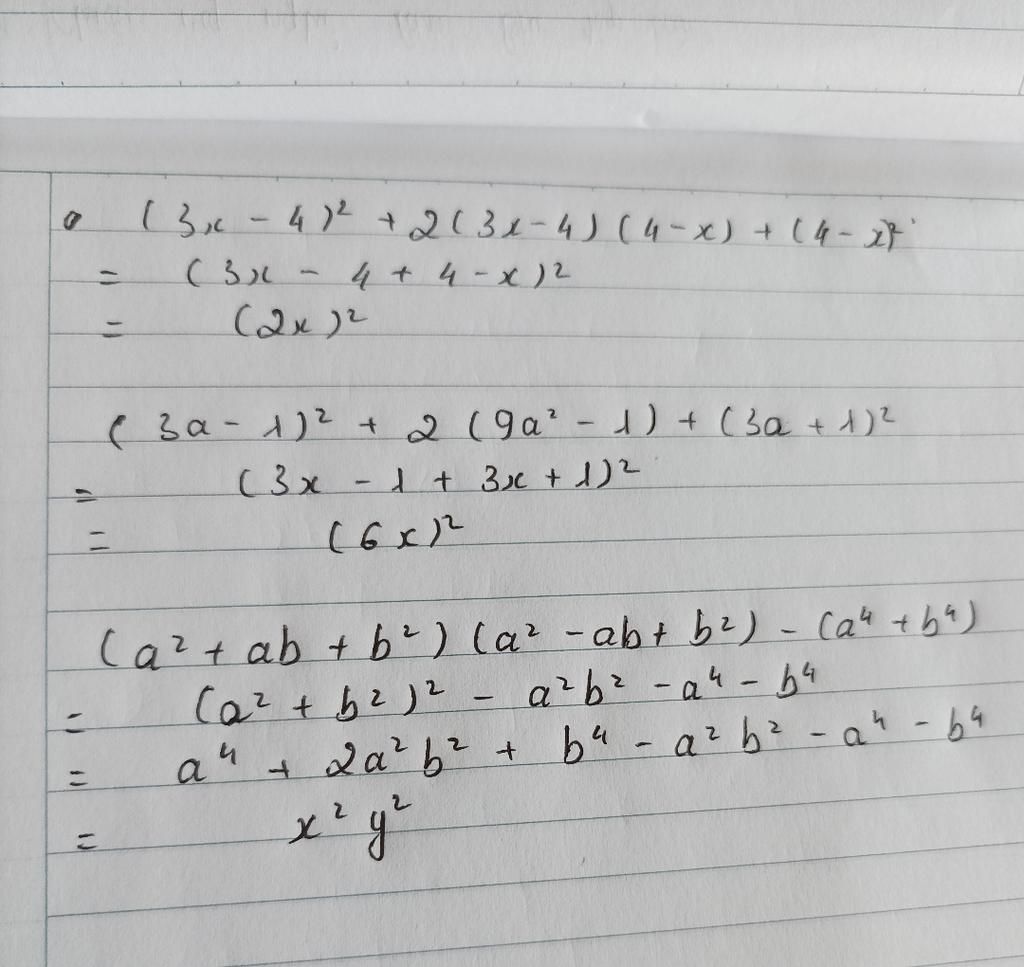 (3x - 4)² + 2(3x-4)(4-x) + (4-x)²
= (3x - 4 + 4-x)²
= (2x)²
(3a-1)² + 2(9a² - 1) + (3a+1)²
= (3x - 1 + 3x + 1)²
= (6x)²
(a² + ab + b²)(a² - ab + b²) - (a⁴ + b⁴)
= (a² + b²)² - a²b² - a⁴ - b⁴
= a⁴ + 2a²b² + b⁴ - a²b² - a⁴ - b⁴
= x²y²